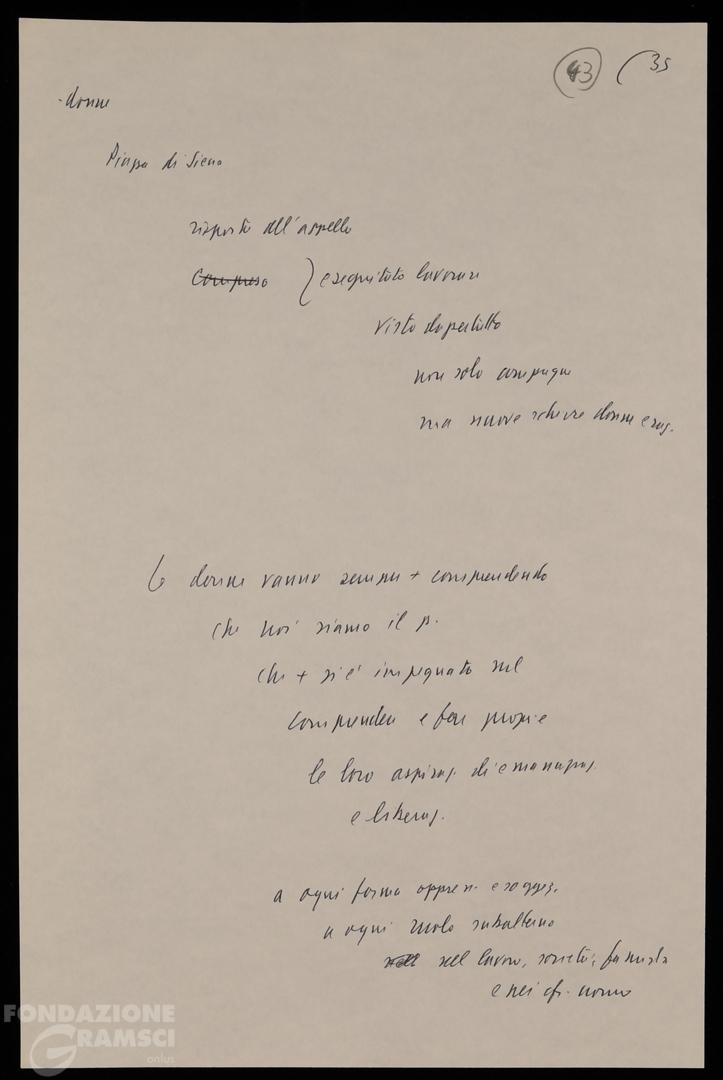 43 (35
- donne
Piazza di Siena
risposto all'appello
Compreso } e seguitato lavorare
visto dapertutto
non solo compagne
ma nuove schiere donne e rag.
Le donne vanno sempre + comprendendo
che noi siamo il p.
che + si è impegnato nel
comprendere e fare proprie
le loro aspiraz. di emancipaz.
e liberaz.
a ogni forma oppress. e soggez.
a ogni ruolo subalterno
nel lavoro, società, famiglia
e nei cfr. uomo
FONDAZIONE
GRAMSCI
onlus